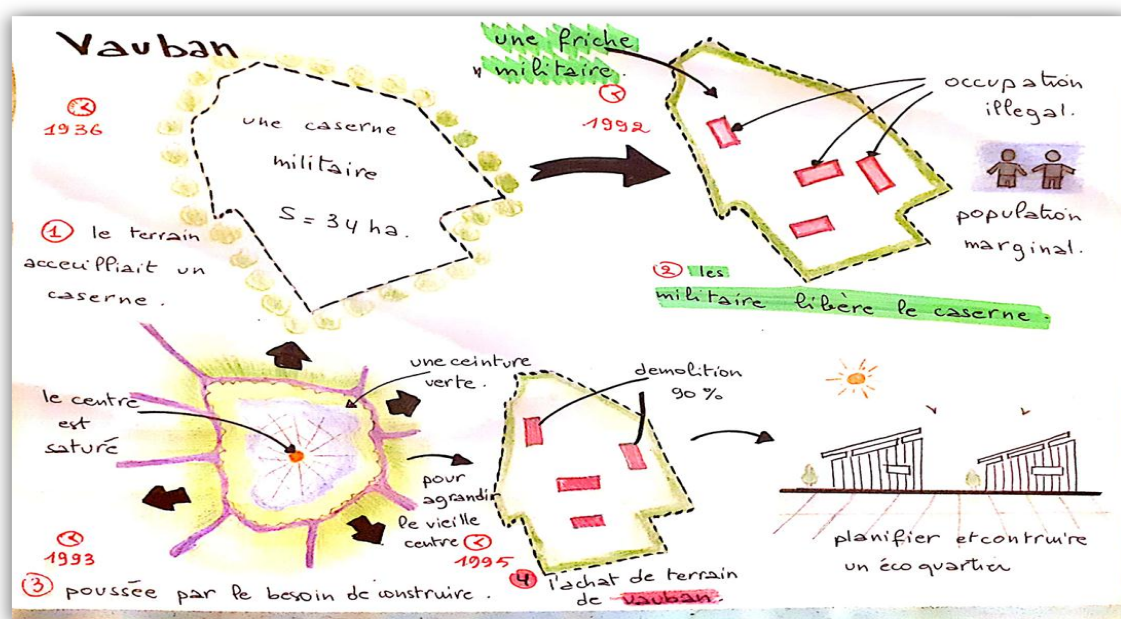 Vauban
1936
une caserne
militaire
S = 34 ha.
1 le terrain
acceuilliait un
caserne.
une friche
militaire.
1992
occupation
illegal.
population
marginal.
2 les
militaire libère le caserne.
le centre
est
saturé
une ceinture
verte.
pour
agrandir
le vieille
centre
1993
3 poussée par le besoin de construire.
demolition
90 %
1995
4 l'achat de terrain
de vauban.
planifier et construire
un éco quartier